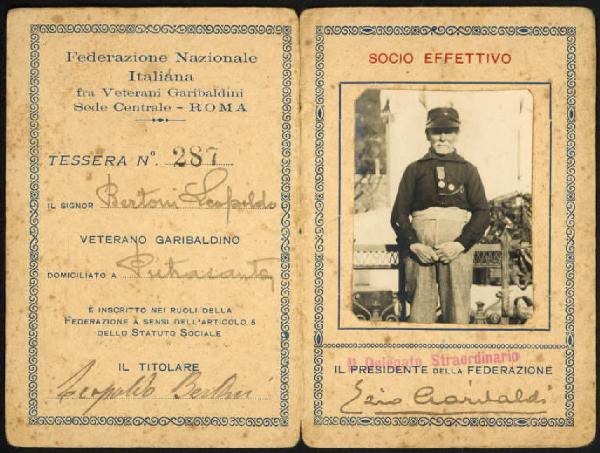 Federazione Nazionale
Italiana
fra Veterani Garibaldini
Sede Centrale - ROMA
TESSERA N° 287
IL SIGNOR Bertoni Leopoldo
VETERANO GARIBALDINO
DOMICILIATO A Pietrasanta
È INSCRITTO NEI RUOLI DELLA
FEDERAZIONE A SENSI DELL'ARTICOLO 5
DELLO STATUTO SOCIALE
IL TITOLARE
Leopoldo Bertoni
SOCIO EFFETTIVO
Il Delegato Straordinario
IL PRESIDENTE DELLA FEDERAZIONE
Ezio Garibaldi